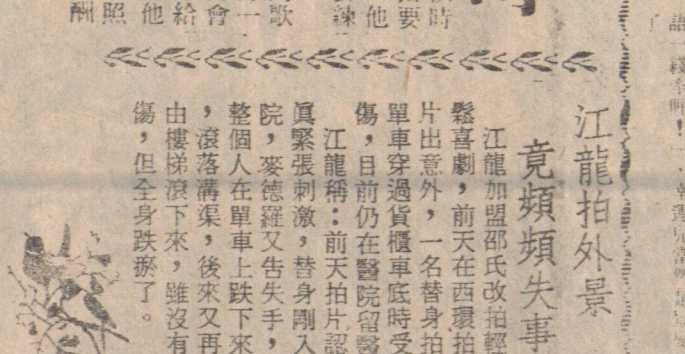 江龍拍外景
竟頻頻失事
江龍加盟邵氏改拍輕
鬆喜劇，前天在西環拍
片出意外，一名替身拍
單車穿過貨櫃車底時受
傷，目前仍在醫院留醫
江龍稱：前天拍片認
眞緊張刺激，替身剛入
院，麥德羅又告失手，
整個人在單車上跌下來
，滾落溝渠，後來又再
由樓梯滾下來，雖沒有
傷，但全身跌瘀了。
時
要
他
練
歌
一
會
給
他
照
酬